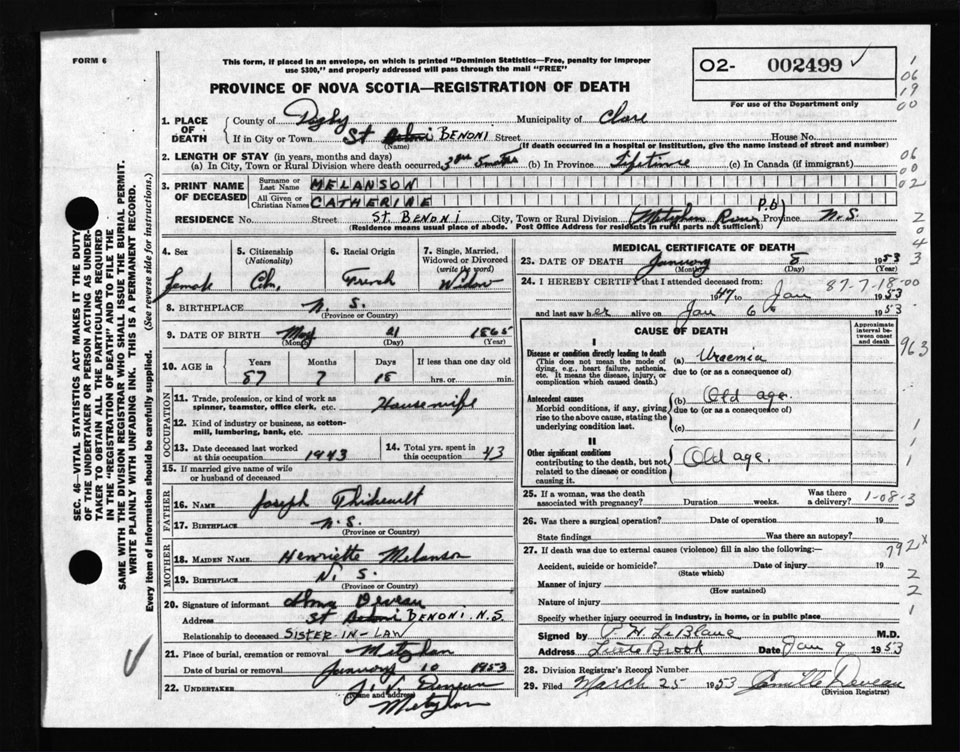 FORM 6
This form, if placed in an envelope, on which is printed "Dominion Statistics—Free, penalty for improper
use $300," and properly addressed will pass through the mail "FREE"
O2- 002499
For use of the Department only
PROVINCE OF NOVA SCOTIA—REGISTRATION OF DEATH
1. PLACE OF DEATH
County of Digby Municipality of Clare
If in City or Town St BENONI Street House No.
(Name) (If death occurred in a hospital or institution, give the name instead of street and number)
2. LENGTH OF STAY (in years, months and days)
(a) In City, Town or Rural Division where death occurred 3 5 (b) In Province Lifetime (c) In Canada (if immigrant)
3. PRINT NAME OF DECEASED
Surname or Last Name MELANSON
All Given or Christian Names CATHERINE
RESIDENCE No. Street ST. BENONI City, Town or Rural Division (Meteghan River P.O) Province N.S.
(Residence means usual place of abode. Post Office Address for residents in rural parts not sufficient)
4. Sex Female
5. Citizenship (Nationality) Cdn.
6. Racial Origin French
7. Single, Married, Widowed or Divorced (write the word) Widow
8. BIRTHPLACE N. S.
(Province or Country)
9. DATE OF BIRTH May 21 1865
(Month) (Day) (Year)
10. AGE in Years Months Days If less than one day old
87 7 18 hrs. or min.
OCCUPATION
11. Trade, profession, or kind of work as spinner, teamster, office clerk, etc. Housewife
12. Kind of industry or business, as cotton-mill, lumbering, bank, etc.
13. Date deceased last worked at this occupation 1943
14. Total yrs. spent in this occupation 43
15. If married give name of wife or husband of deceased
FATHER
16. NAME Joseph Thibeault
17. BIRTHPLACE N. S.
(Province or Country)
MOTHER
18. MAIDEN NAME Henriette Melanson
19. BIRTHPLACE N. S.
(Province or Country)
20. Signature of informant Deveau
Address St BENONI, N.S.
Relationship to deceased SISTER-IN-LAW
21. Place of burial, cremation or removal Meteghan
Date of burial or removal January 10 1953
22. UNDERTAKER
(Name and address)
Meteghan
MEDICAL CERTIFICATE OF DEATH
23. DATE OF DEATH January 8 1953
(Month) (Day) (Year)
24. I HEREBY CERTIFY that I attended deceased from:
1947 to Jan 1953
and last saw her alive on Jan 6 1953
CAUSE OF DEATH
Approximate interval between onset and death
I
Disease or condition directly leading to death (a) Uraemia
(This does not mean the mode of dying, e.g., heart failure, asthenia, etc. It means the disease, injury, or complication which caused death.)
due to (or as a consequence of)
Antecedent causes
Morbid conditions, if any, giving rise to the above cause, stating the underlying condition last.
(b) Old age.
due to (or as a consequence of)
(c)
II
Other significant conditions
contributing to the death, but not related to the disease or condition causing it.
Old age.
25. If a woman, was the death associated with pregnancy? Duration weeks. Was there a delivery?
26. Was there a surgical operation? Date of operation 19
State findings Was there an autopsy?
27. If death was due to external causes (violence) fill in also the following:—
Accident, suicide or homicide? Date of injury 19
(State which)
Manner of injury
(How sustained)
Nature of injury
Specify whether injury occurred in industry, in home, or in public place
Signed by P. H. LeBlanc M.D.
Address Little Brook Date Jan 9 1953
28. Division Registrar's Record Number
29. Filed March 25 1953 Camille Deveau
(Division Registrar)
SEC. 46—VITAL STATISTICS ACT MAKES IT THE DUTY
OF THE UNDERTAKER OR PERSON ACTING AS UNDER-
TAKER TO OBTAIN ALL THE PARTICULARS REQUIRED
IN THE "REGISTRATION OF DEATH" AND TO FILE THE
SAME WITH THE DIVISION REGISTRAR WHO SHALL ISSUE THE BURIAL PERMIT.
WRITE PLAINLY WITH UNFADING INK. THIS IS A PERMANENT RECORD.
Every item of information should be carefully supplied. (See reverse side for instructions.)
1
06
19
00
06
00
02
2
0
4
3
87-7-18-00
963
1
1
1
1-08-3
792X
2
2
1